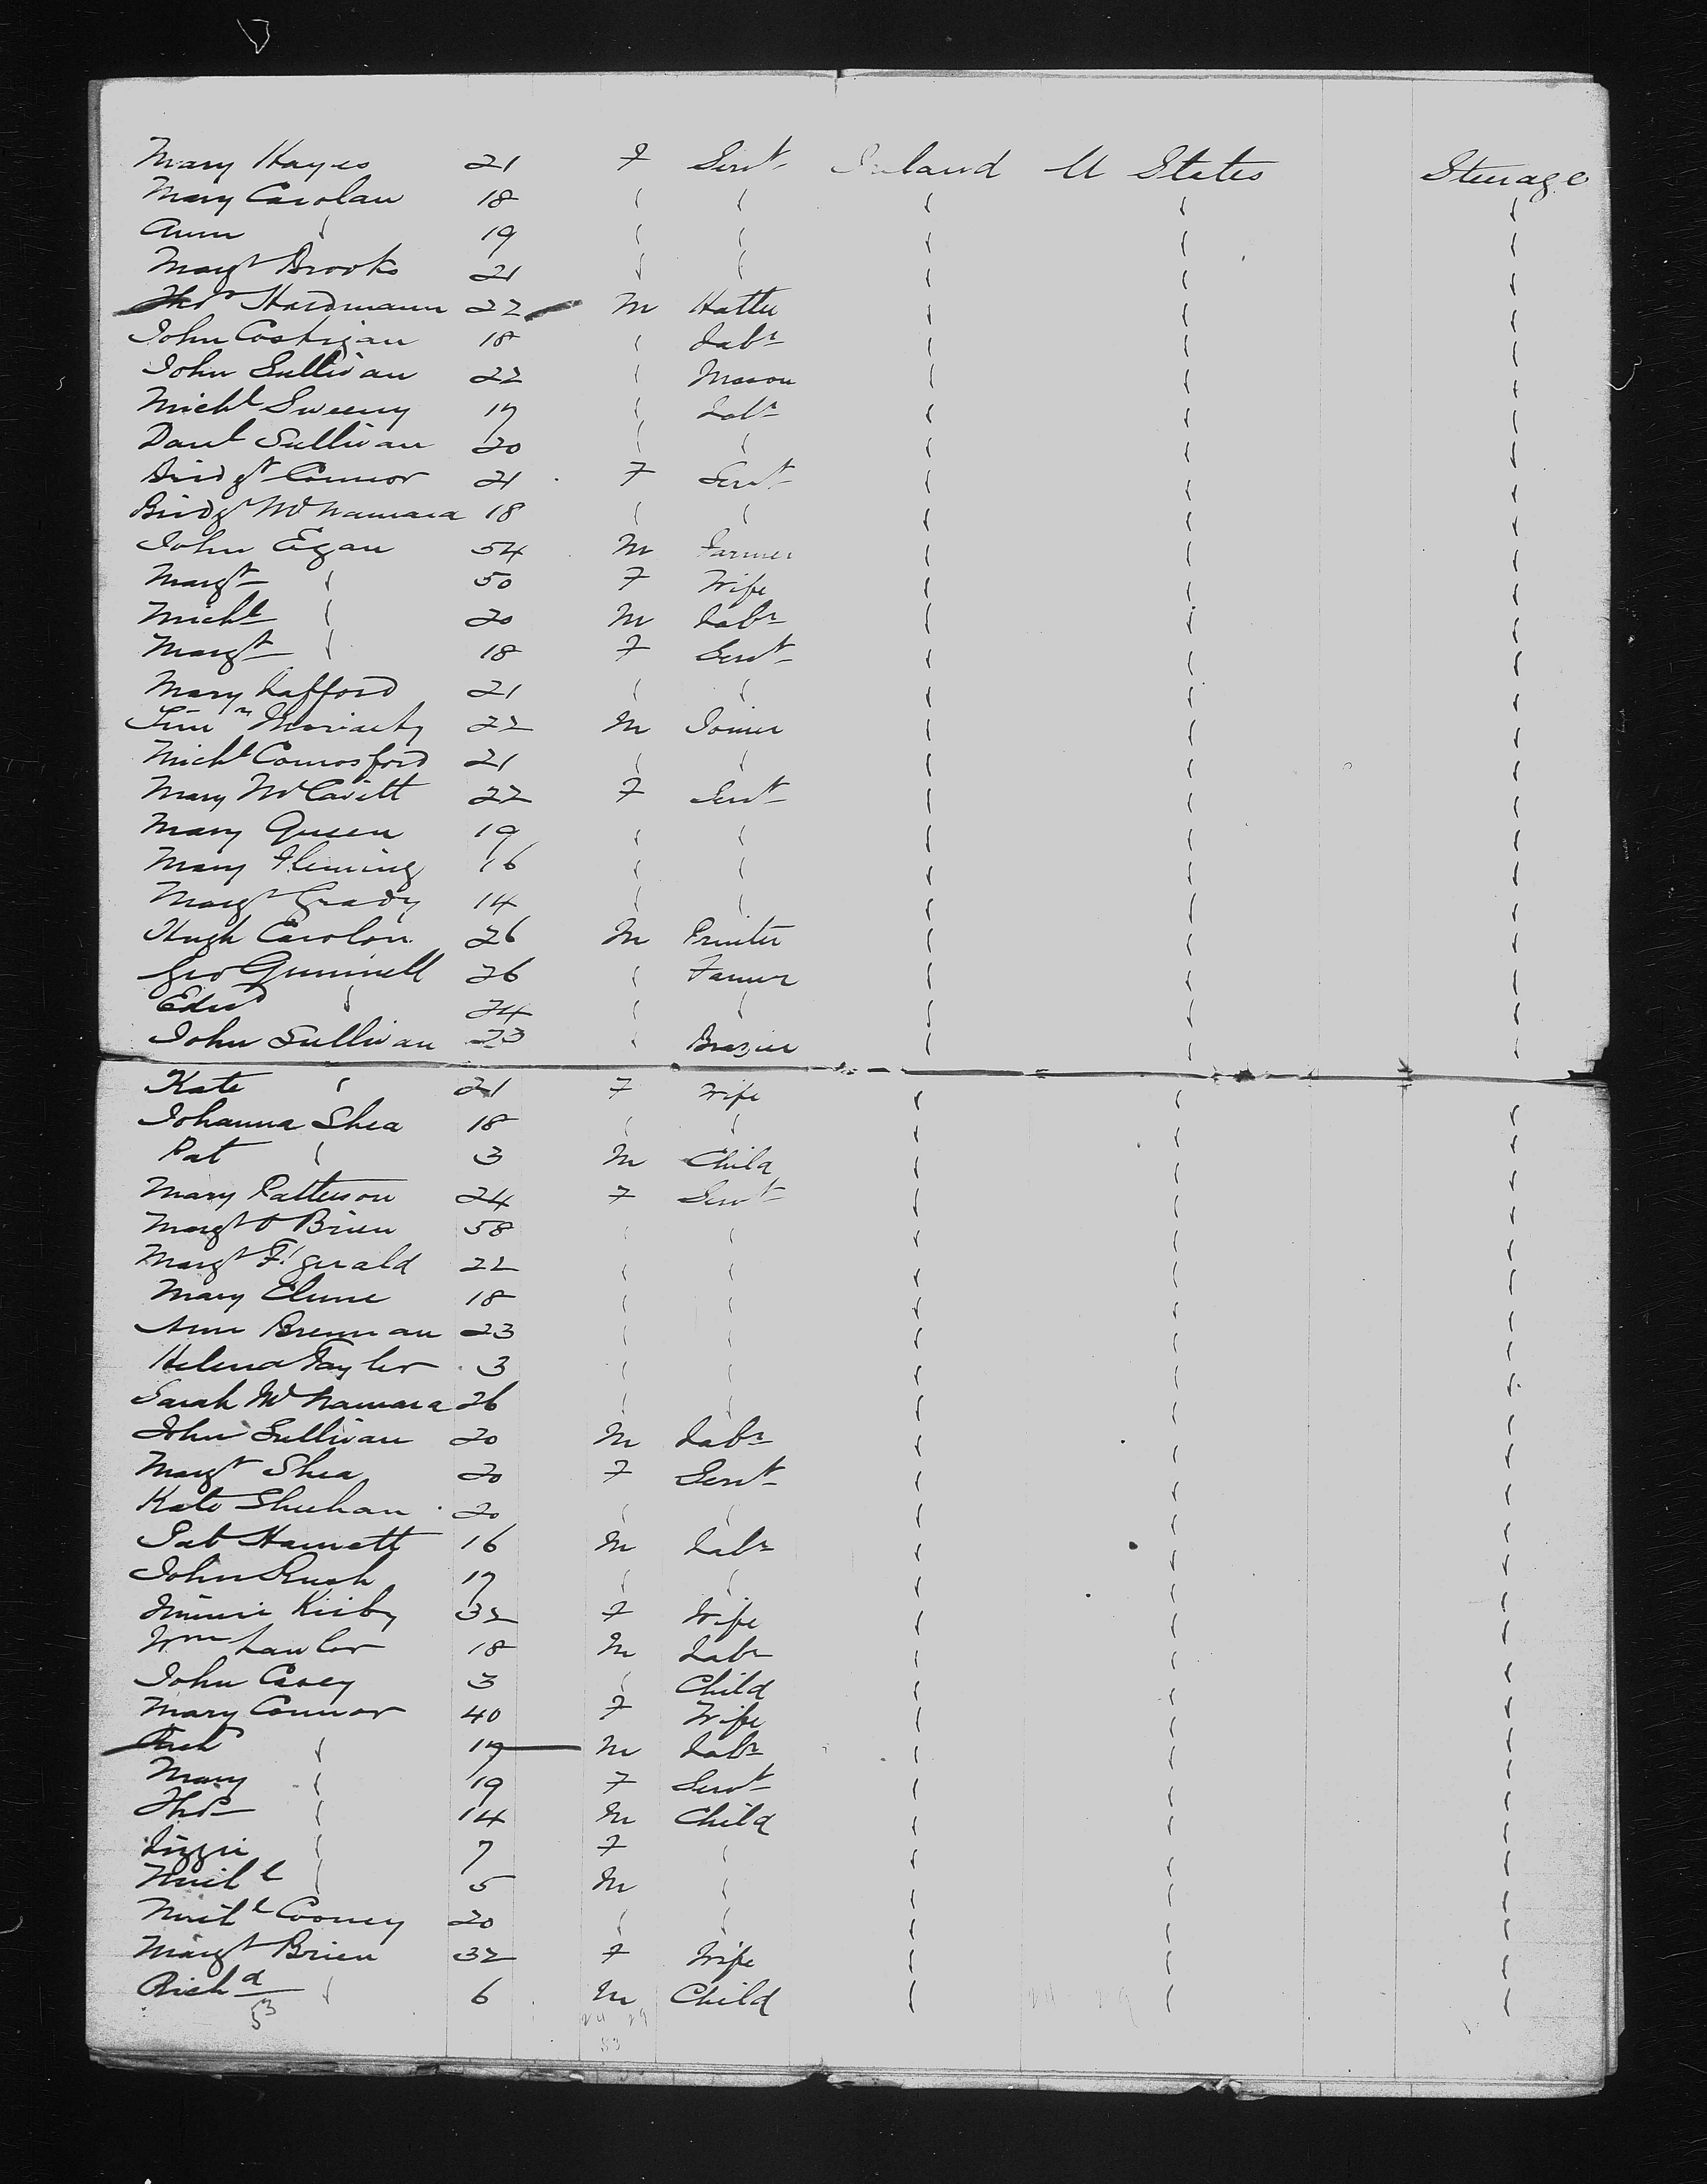 Mary Hayes 21 F Servt Ireland U States Steerage
Mary Carolan 18 " " " " "
Ann " 19 " " " " "
Margt Brooks 21 " " " " "
Thos Hardmann 22 M Hatter " " "
John Costigan 18 " Labr " " "
John Sullivan 22 " Mason " " "
Michl Sweeny 17 " Labr " " "
Danl Sullivan 20 " " " " "
Bridgt Connor 21 F Servt " " "
Bridgt McNamara 18 " " " " "
John Egan 54 M Farmer " " "
Margt " 50 F Wife " " "
Michl " 20 M Labr " " "
Margt " 18 F Servt " " "
Mary Lafford 21 " " " " "
Timy Moriarty 22 M Joiner " " "
Michl Comosford 21 " " " " "
Mary McCavitt 22 F Servt " " "
Mary Queen 19 " " " " "
Mary Fleming 16 " " " " "
Margt Grady 14 " " " " "
Hugh Carolon 26 M Printer " " "
Geo Gunnell 26 " Farmer " " "
Edwd " 24 " " " " "
John Sullivan 23 " Brazier " " "
Kate " 21 F Wife " " "
Johanna Shea 18 " " " " "
Pat " 3 M Child " " "
Mary Patterson 24 F Servt " " "
Margt O Brien 58 " " " " "
Margt F'gerald 22 " " " " "
Mary Clune 18 " " " " "
Ann Brennan 23 " " " " "
Helena Taylor 3 " " " " "
Sarah McNamara 26 " " " " "
John Sullivan 20 M Labr " " "
Margt Shea 20 F Servt " " "
Kate Sheehan 20 " " " " "
Pat Harnett 16 M Labr " " "
John Rush 17 " " " " "
Minnie Kirby 32 F Wife " " "
Wm Lawlor 18 M Labr " " "
John Casey 3 " Child " " "
Mary Connor 40 F Wife " " "
" 17 M Labr " " "
Mary " 19 F Servt " " "
Thos " 14 M Child " " "
Lizzie " 7 F " " " "
Michl " 5 M " " " "
Michl Cooney 20 " " " " "
Margt Brien 32 F Wife " " "
Richd " 6 M Child " " "
53 24 29 24 29
53